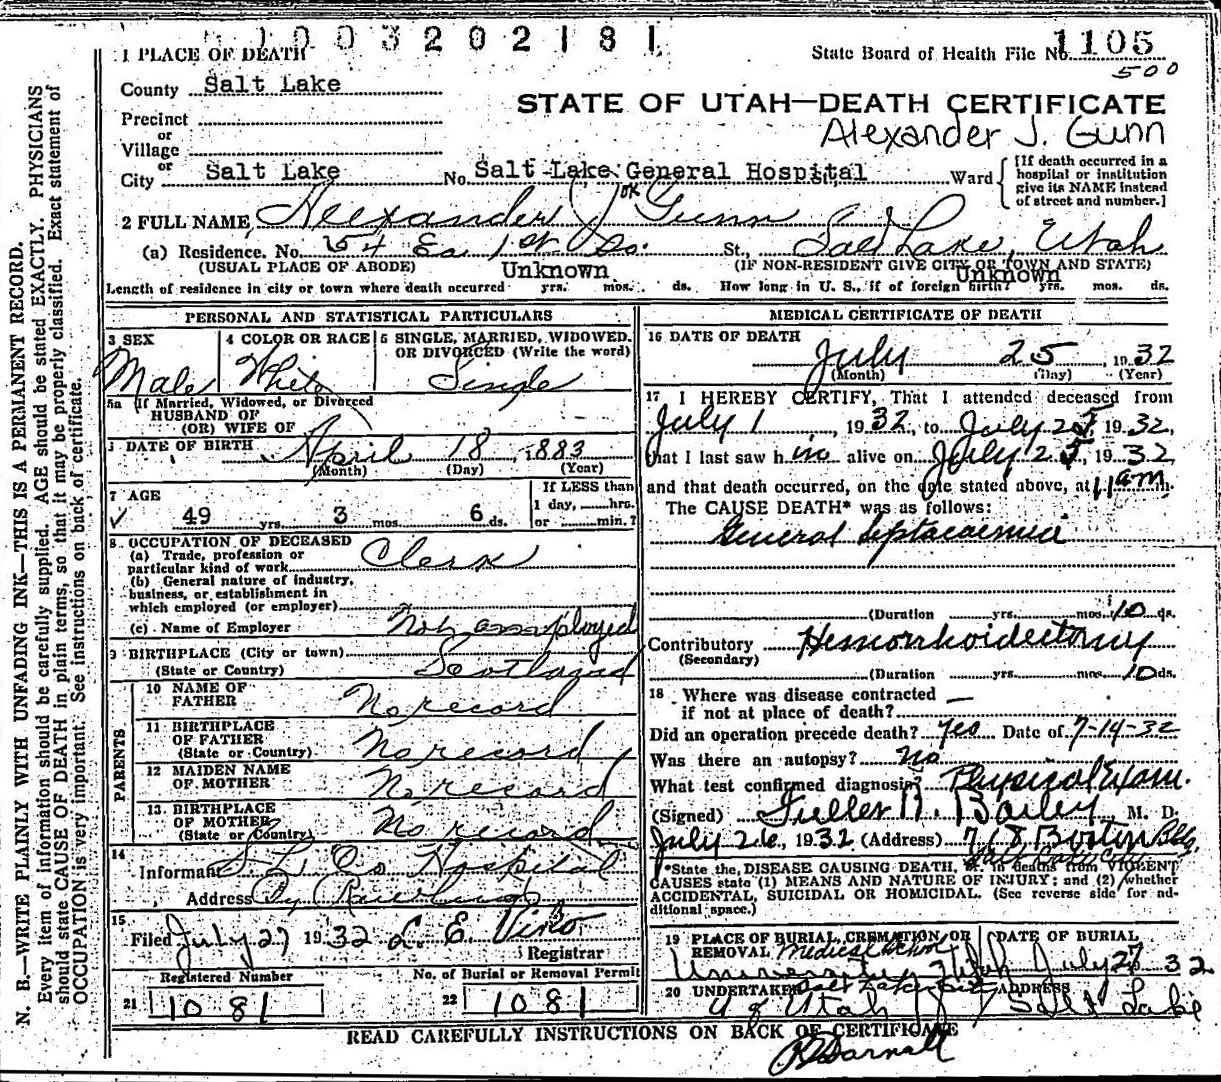 1003202181
1 PLACE OF DEATH
State Board of Health File No. 1105
500
County Salt Lake
STATE OF UTAH—DEATH CERTIFICATE
Precinct
or
Village
Alexander J. Gunn
or
City Salt Lake No. Salt Lake General Hospital Ward
[If death occurred in a hospital or institution give its NAME instead of street and number.]
2 FULL NAME Alexander J Gunn
(a) Residence. No. 54 Ea 1st So. St., Salt Lake, Utah
(USUAL PLACE OF ABODE) (IF NON-RESIDENT GIVE CITY OR TOWN AND STATE)
Unknown Unknown
Length of residence in city or town where death occurred yrs. mos. ds. How long in U. S., if of foreign birth? yrs. mos. ds.
PERSONAL AND STATISTICAL PARTICULARS
3 SEX
Male
4 COLOR OR RACE
White
5 SINGLE, MARRIED, WIDOWED, OR DIVORCED (Write the word)
Single
5a If Married, Widowed, or Divorced
HUSBAND OF
(OR) WIFE OF
6 DATE OF BIRTH April 18 1883
(Month) (Day) (Year)
7 AGE
49 yrs. 3 mos. 6 ds.
If LESS than
1 day, hrs.
or min.?
8 OCCUPATION OF DECEASED
(a) Trade, profession or
particular kind of work Clerk
(b) General nature of industry,
business, or establishment in
which employed (or employer)
(c) Name of Employer Not employed
9 BIRTHPLACE (City or town)
(State or Country) Scotland
PARENTS
10 NAME OF
FATHER No record
11 BIRTHPLACE
OF FATHER
(State or Country) No record
12 MAIDEN NAME
OF MOTHER No record
13 BIRTHPLACE
OF MOTHER
(State or Country) No record
14
Informant S. L. Co Hospital
Address By Rawlings
15
Filed July 27 1932 L. E. Viko
Registrar
Registered Number No. of Burial or Removal Permit
21 1081 22 1081
MEDICAL CERTIFICATE OF DEATH
16 DATE OF DEATH
July 25, 1932
(Month) (Day) (Year)
17 I HEREBY CERTIFY, That I attended deceased from
July 1, 1932, to July 25, 1932,
that I last saw him alive on July 25, 1932
and that death occurred, on the date stated above, at 11am m.
The CAUSE DEATH* was as follows:
General Septacaemia
(Duration yrs. mos. 10 ds.
Contributory Hemorrhoidectomy
(Secondary)
(Duration yrs. mos. 10 ds.
18 Where was disease contracted
if not at place of death? —
Did an operation precede death? Yes Date of 7-14-32
Was there an autopsy? No
What test confirmed diagnosis? Physical Exam.
(Signed) Fuller B. Bailey M. D.
July 26, 1932 (Address) 768 Boston Bldg.
Salt Lake City
*State the DISEASE CAUSING DEATH, or in deaths from VIOLENT
CAUSES state (1) MEANS AND NATURE OF INJURY; and (2) whether
ACCIDENTAL, SUICIDAL OR HOMICIDAL. (See reverse side for ad-
ditional space.)
19 PLACE OF BURIAL, CREMATION OR
REMOVAL Medical School
DATE OF BURIAL
University Utah July 27 32
20 UNDERTAKER Salt Lake City ADDRESS
U of Utah Salt Lake
READ CAREFULLY INSTRUCTIONS ON BACK OF CERTIFICATE
Darnall
N. B.—WRITE PLAINLY WITH UNFADING INK—THIS IS A PERMANENT RECORD.
Every item of information should be carefully supplied. AGE should be stated EXACTLY. PHYSICIANS
should state CAUSE OF DEATH in plain terms, so that it may be properly classified. Exact statement of
OCCUPATION is very important. See instructions on back of certificate.